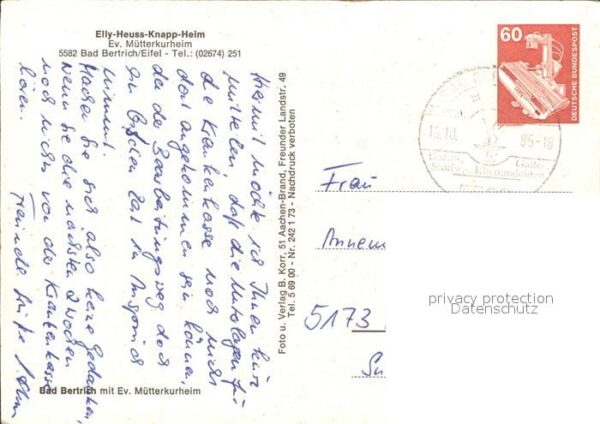 Elly-Heuss-Knapp-Heim
Ev. Mütterkurheim
5582 Bad Bertrich/Eifel - Tel.: (02674) 251
Hiermit möchte ich Ihnen kurz
mitteilen, daß die Unterlagen für
die Krankenkasse noch nicht
dort angekommen sein können,
da der Bearbeitungsweg doch
ein bißchen Zeit in Anspruch
nimmt.
Machen Sie sich also keine Gedanken,
wenn Sie die nächsten 2 Wochen
noch nichts von der Krankenkasse
hören.
Freundliche Grüße
Bad Bertrich mit Ev. Mütterkurheim
Foto u. Verlag B. Korr, 51 Aachen-Brand, Freunder Landstr. 49
Tel. 5 69 00 - Nr. 242 1 73 - Nachdruck verboten
60
DEUTSCHE BUNDESPOST
Frau
Annem
5173
privacy protection
Datenschutz